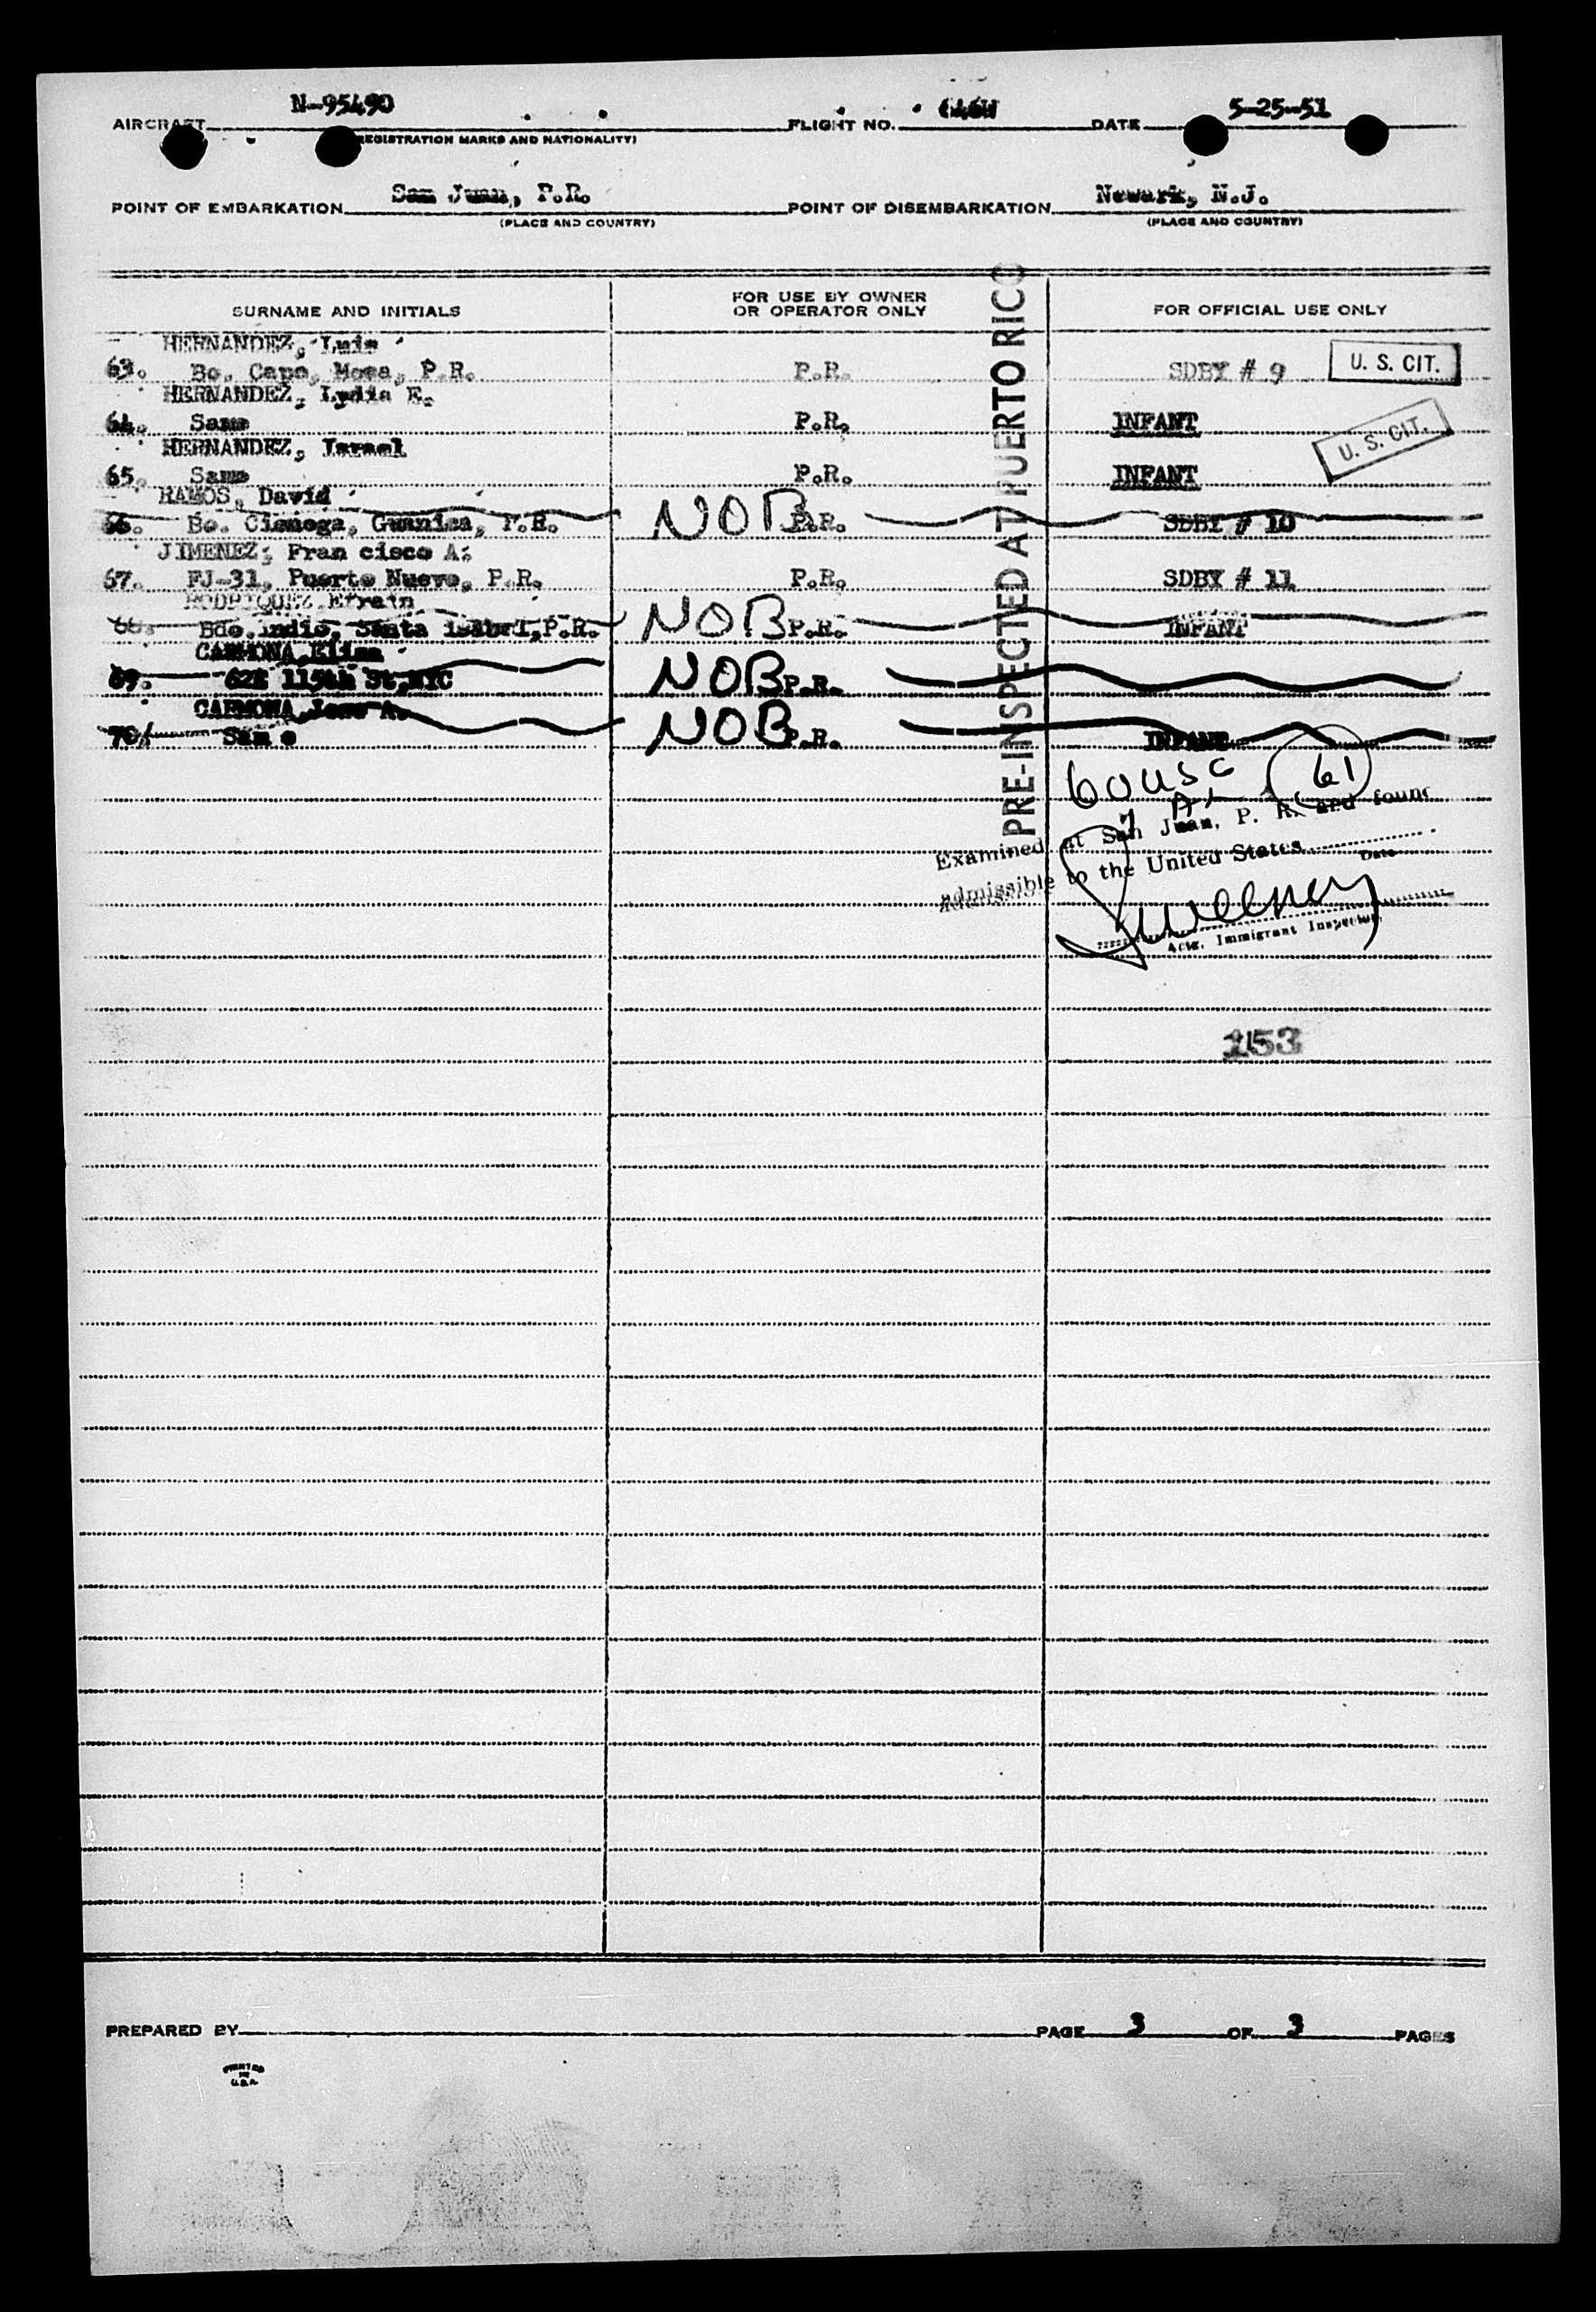 N-95490 5-25-51
AIRCRAFT FLIGHT NO. DATE
(REGISTRATION MARKS AND NATIONALITY)
San Juan, P.R. Newark, N.J.
POINT OF EMBARKATION POINT OF DISEMBARKATION
(PLACE AND COUNTRY) (PLACE AND COUNTRY)
SURNAME AND INITIALS FOR USE BY OWNER OR OPERATOR ONLY FOR OFFICIAL USE ONLY
HERNANDEZ, Luis
63. Bo. Capo, Moca, P.R. P.R. SDBY # 9 U. S. CIT.
HERNANDEZ, Lydia E.
64. Same P.R. INFANT U. S. CIT.
HERNANDEZ, Israel
65. Same P.R. INFANT
RAMOS, David
66. Bo. Cienega, Guanica, P.R. NOB P.R. SDBY # 10
JIMENEZ, Fran cisco A.
67. FJ-31, Puerto Nuevo, P.R. P.R. SDBY # 11
RODRIQUEZ, Efrain
68. Bdo. Indio, Santa Isabel, P.R. NOB P.R. INFANT
CARMONA, Elisa
69. 62E 115th St, NYC NOB P.R.
CARMONA, Jose A.
70. Sam e NOB P.R. INFANT
PRE-INSPECTED AT PUERTO RICO
60 USC 61
1 A
Examined at San Juan, P. R. and found
admissible to the United States
Date
Sweeney
Actg. Immigrant Inspector
153
PREPARED BY PAGE 3 OF 3 PAGES
PRINTED
IN
U.S.A.